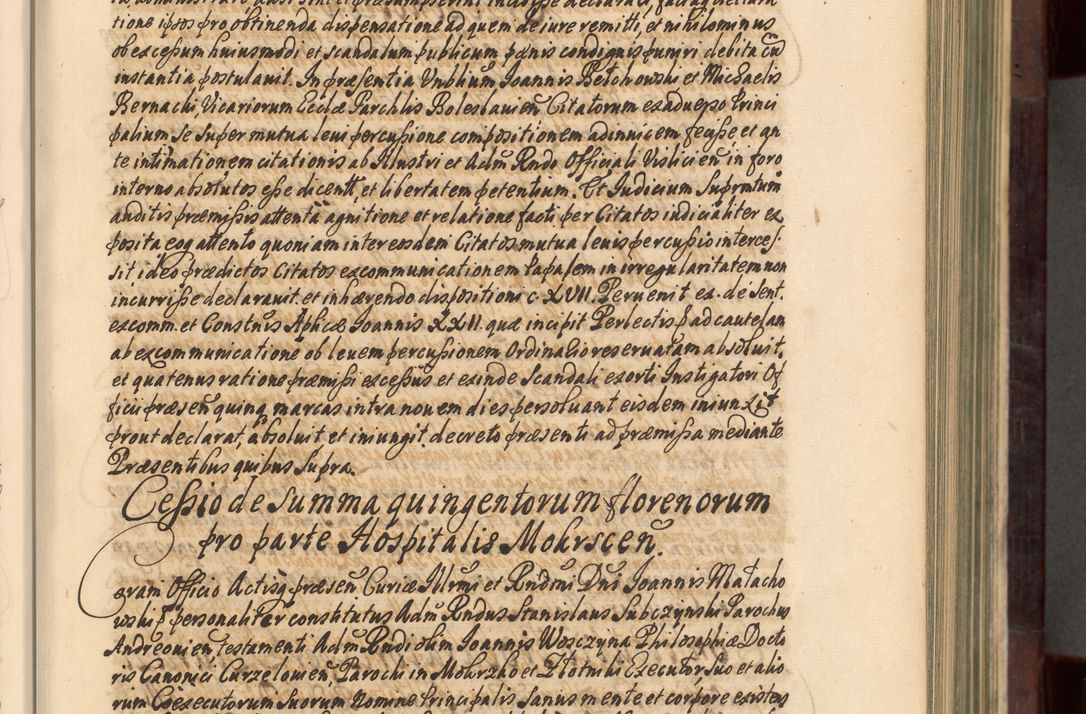 tione ipsos pro obtinenda dispensatione ad quem de iure remitti, et nihilominus
ob excessum huiusmodi et scandalum publicum pænis condignis puniri debita cũ
instantia postulavit. In præsentia Vnblium Joannis Petchowski et Michaelis
Bernachi, Vicariorum Ecclæ Parchlis Boleslavieñ Citatorum ex adverso Princi
palium se super mutua levi percussione compositionem adinvicem fecisse et an
te intimationem citationis ab Illustri et Adm̃ Rndo Officiali Vislicieñ in foro
interno absolutos esse dicentt, et libertatem petentium. Et Judicium Supremtum
auditis præmissis attenta agnitione et relatione facti per Citatos iudicialiter ex
posita eoq attento quoniam inter eosdem Citatos mutua levis percussio interces
sit, ideo prædictos Citatos excommunicationem Papalem in irregularitatem non
incurrisse declaravit. et inhærendo dispositioni c. XVII. Pervenit ex. de sent.
excomm. et Constnis Aplicæ Joannis XXII. quæ incipit Perlectis ad cautelam
ab excommunicatione ob levem percussionem Ordinario reservatam absolvit,
et quatenus ratione præmissi excessus et exinde scandali exorti Instigatori Of
ficii præseñ quinq marcas intra novem dies persolvant eisdem iniunxit
prout declarat, absolvit et iniungit decreto præsenti ad præmissa mediante
Præsentibus quibus supra.
Cessio de summa quingentorum florenorum
pro parte Hospitalis Mokrsceñ.
Coram Officio Actisq præseñ Curiæ Illrmi et Rndmi Dni Joannis Małacho
wski personaliter constitutus Adm̃ Rndus Stanislaus Subczynski Parochus
Andreovieñ testamenti Adm̃ Rndi olim Joannis Woszczyna Philosophiæ Docto
ris Canonici Curzelovieñ, Parochi in Mokrzko et Płotniki Executor suo et alio
rum Coexecutorum suorum Nomine Principalis sanus mente et corpore existens